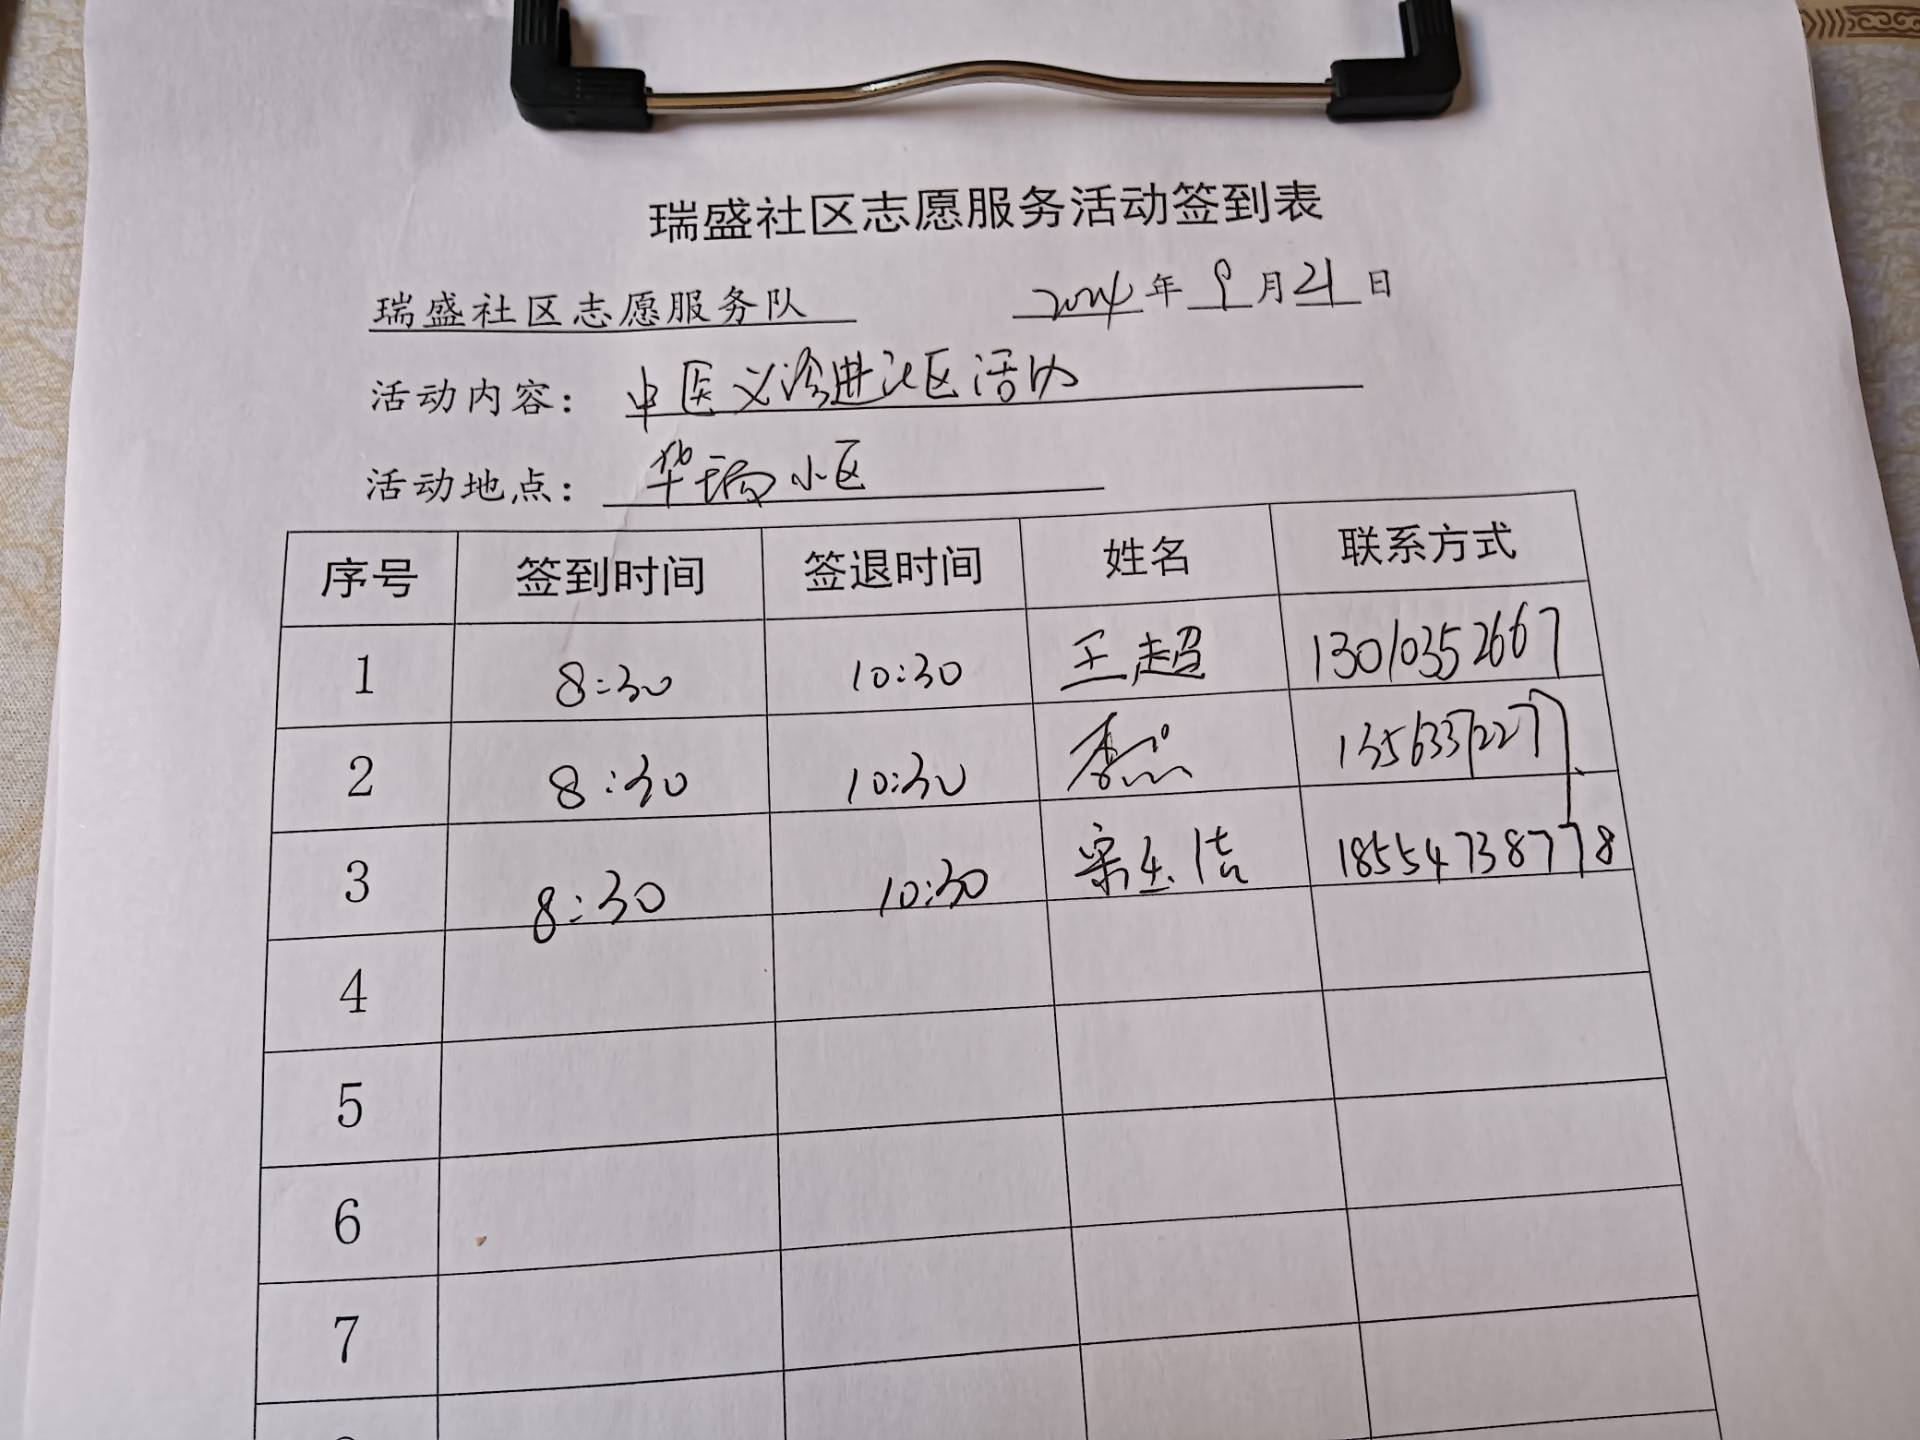 瑞盛社区志愿服务活动签到表
瑞盛社区志愿服务队 2024年9月21日
活动内容：中医义诊进社区活动
活动地点：华瑞小区
序号 签到时间 签退时间 姓名 联系方式
1 8:30 10:30 王超 13010352667
2 8:30 10:30
3 8:30 10:30 18554738778
4
5
6
7